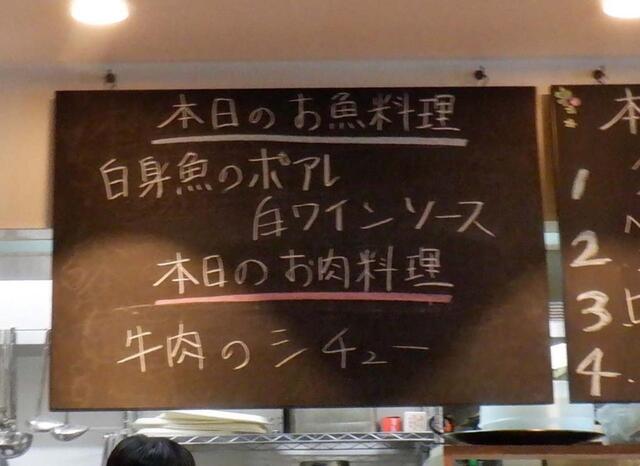 本日のお魚料理
白身魚のポアレ
白ワインソース
本日のお肉料理
牛肉のシチュー
本
1
2
3
4.